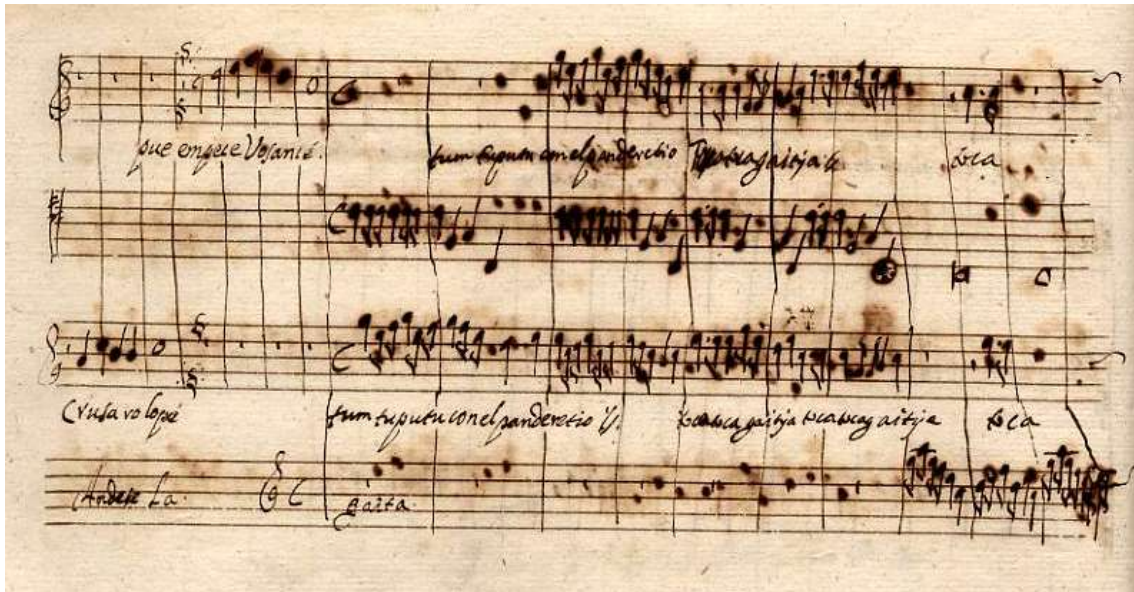 que empece Vosancé.
tum tuputu con el panderetio toca toca gaitija toca
Crusa vo lopé
tum tuputu con el panderetio ij. toca toca gaitija toca toca gaitija toca
Andese La gaita